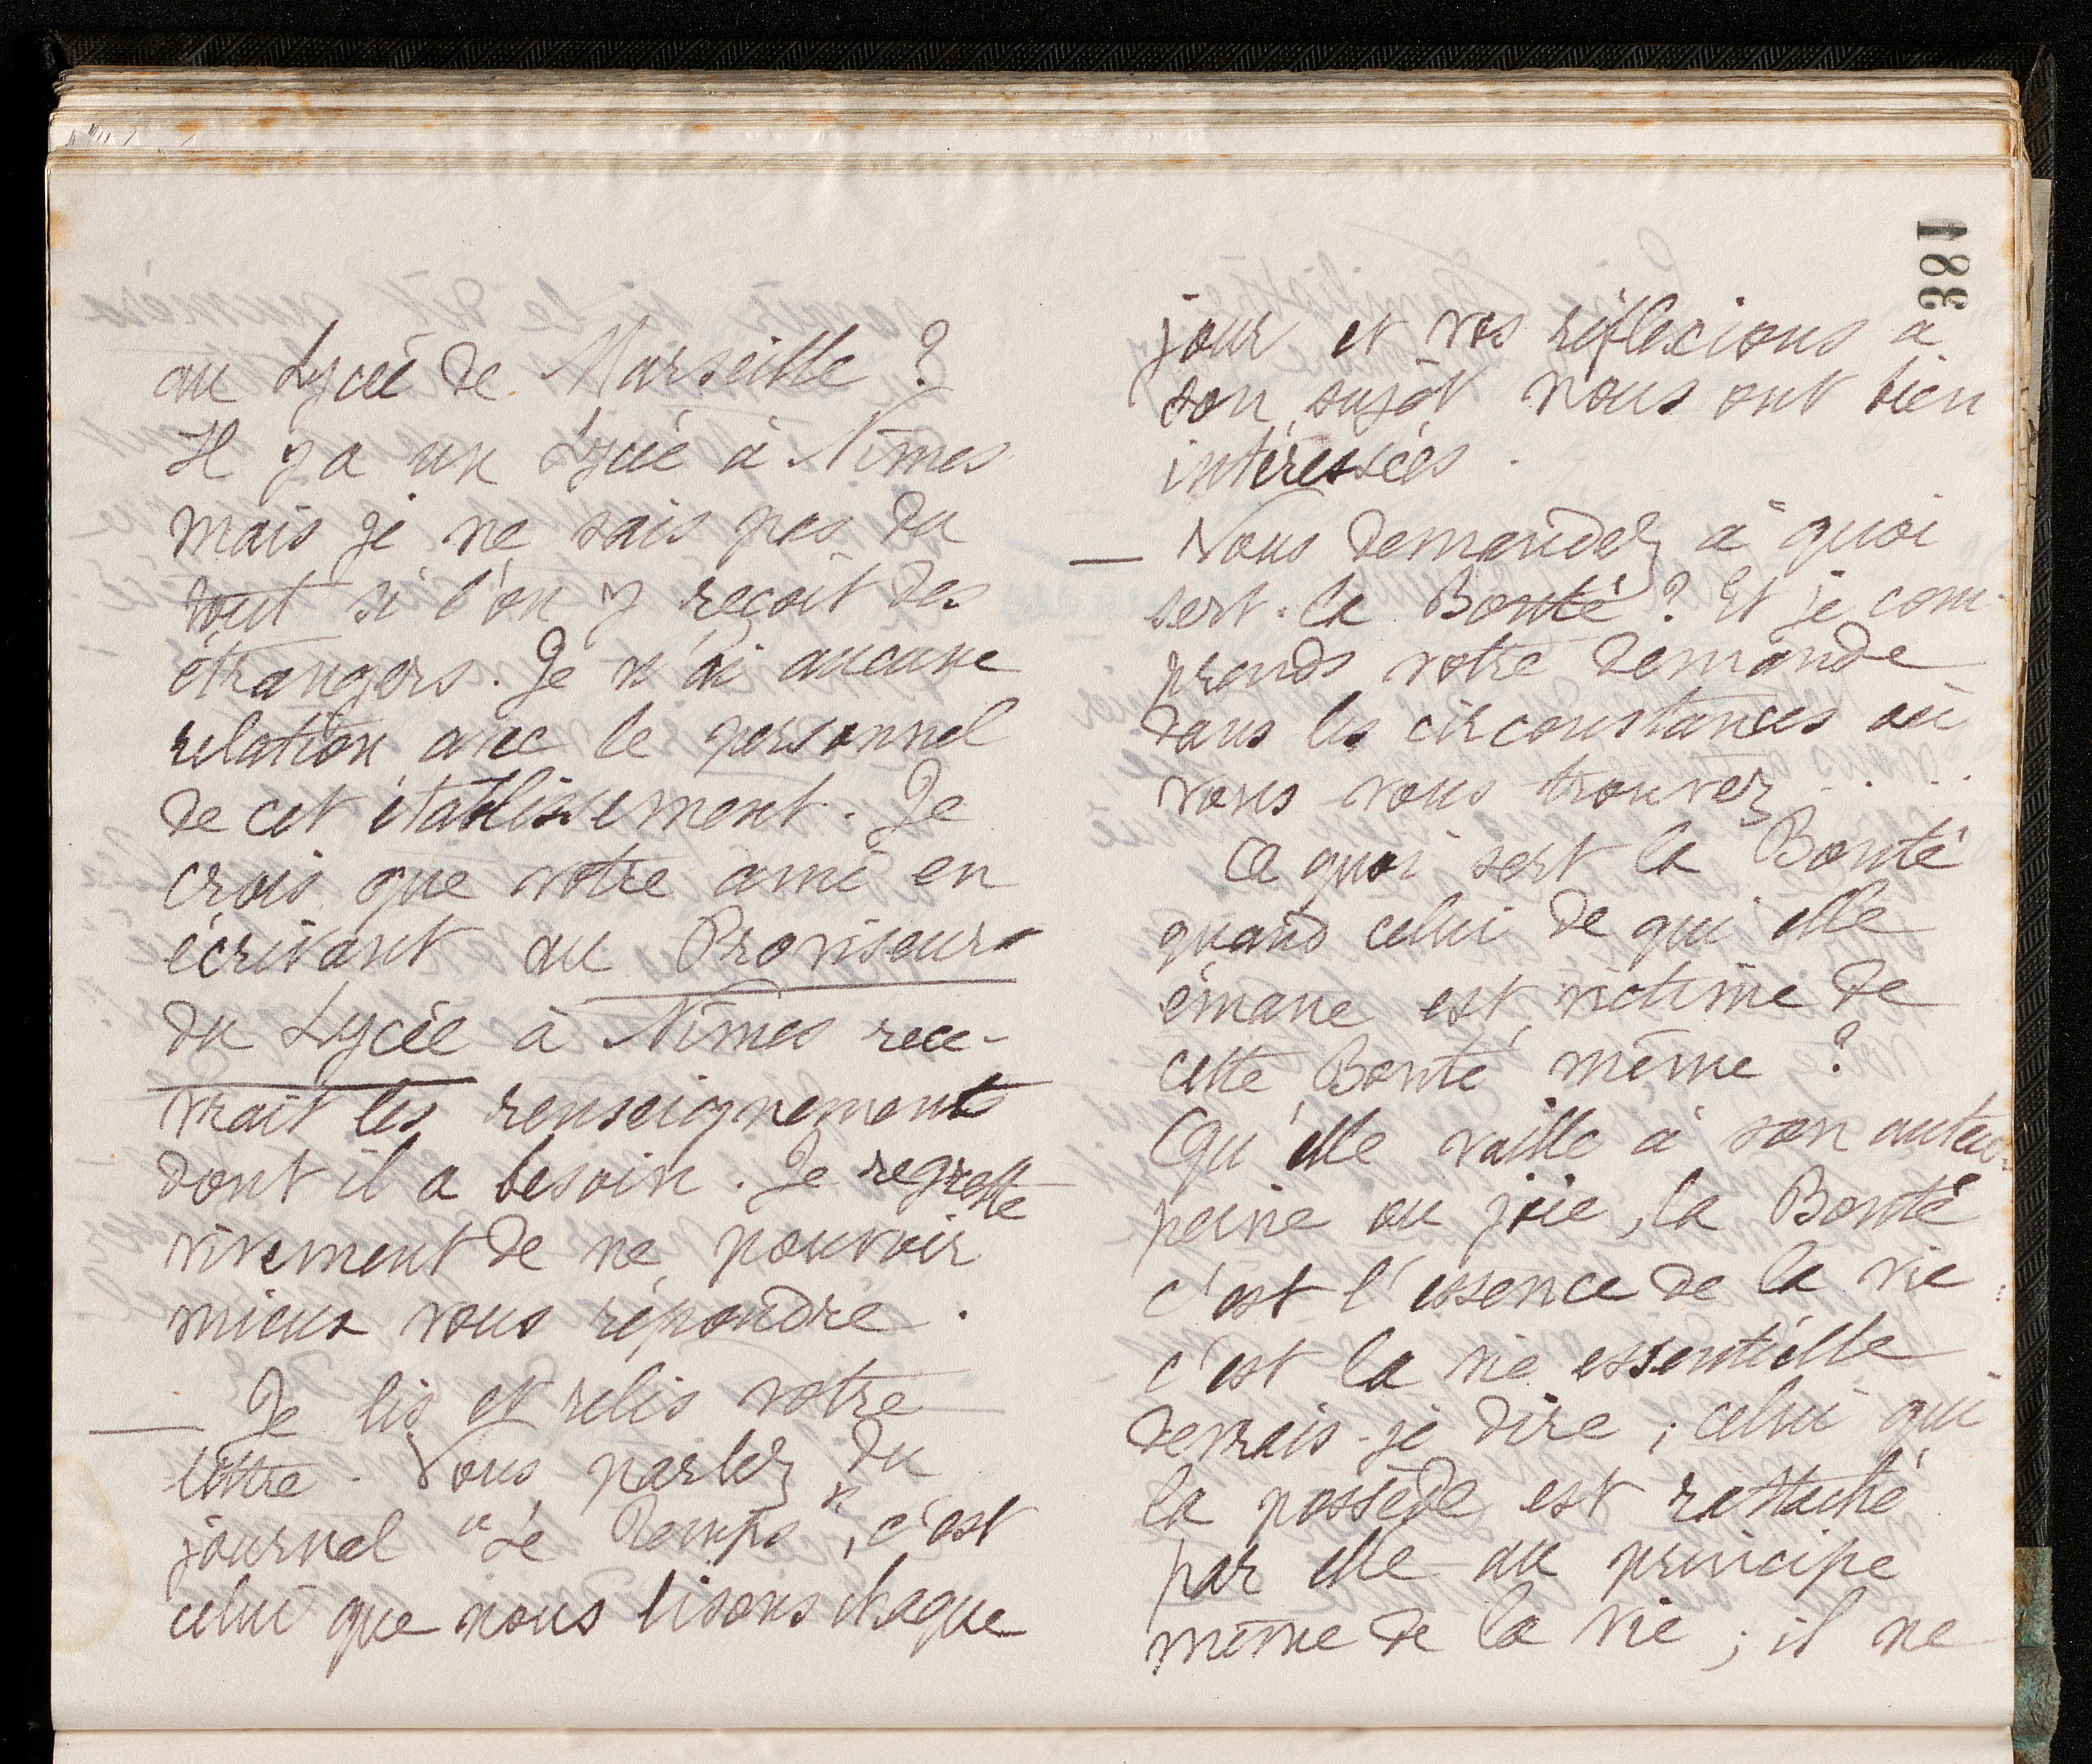 au Lycée de Marseille ?
Il y a un Lycée à Nîmes
mais je ne sais pas du
tout si l'on y reçoit des
étrangers. Je n'ai aucune
relation avec le personnel
de cet établissement. Je
crois que votre ami en
écrivant au Proviseur
du Lycée à Nîmes rece-
vrait les renseignements
dont il a besoin. Je regrette
vivement de ne pouvoir
mieux vous répondre.
— Je lis et relis votre
lettre. Vous parlez du
journal "Le Temps", c'est
celui que nous lisons chaque
381
jour et vos réflexions à
son sujet nous ont bien
intéressées.
— Vous demandez à quoi
sert la Bonté ? Et je com-
prends votre demande
dans les circonstances où
vous vous trouvez....
A quoi sert la Bonté
quand celui de qui elle
émane est victime de
cette Bonté même ?
Qu'elle vaille à son auteur
peine ou joie, la Bonté
c'est l'essence de la vie :
c'est la vie essentielle
devrais-je dire ; celui qui
la possède est rattaché
par elle au principe
même de la vie ; il ne